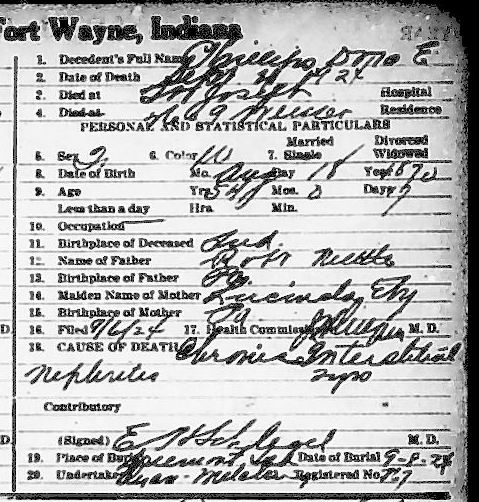 Fort Wayne, Indiana
1. Decedent's Full Name Phillips E
2. Date of Death Sept. 1924
3. Died at St Joseph Hospital
4. Died at Residence
PERSONAL AND STATISTICAL PARTICULARS
Married Divorced
5. Sex 6. Color W 7. Single Widowed
8. Date of Birth Mo. Aug Day 18 Year 1870
9. Age Yrs. 54 Mos. 0 Days
Less than a day Hrs. Min.
10. Occupation
11. Birthplace of Deceased Ind.
12. Name of Father Robt
13. Birthplace of Father Pa
14. Maiden Name of Mother Lucinda Eby
15. Birthplace of Mother Pa
D. 16. Filed 9/6/24 17. Health Commissioner M. D.
18. CAUSE OF DEATH Chronic Interstitial
Nephritis 2 yrs
Contributory
D. (Signed) E H Schlegel M. D.
19. Place of Burial Ind Date of Burial 9-8-24
20. Undertaker Registered No.